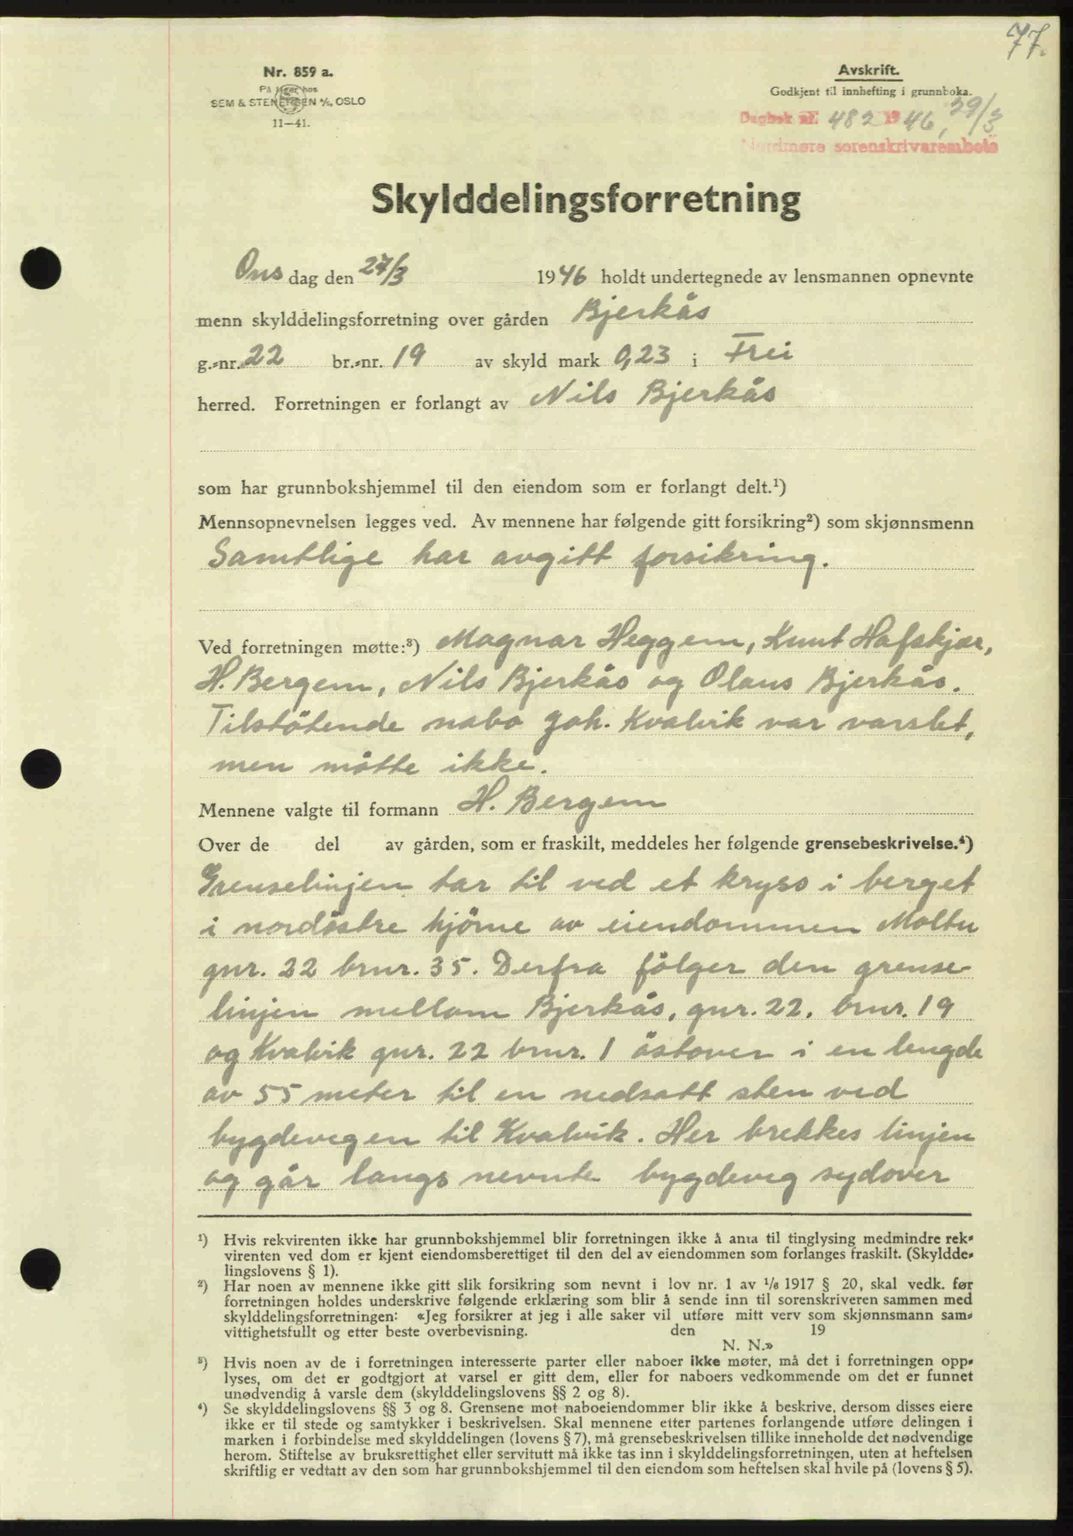 77.
Nr. 859 a.
På lager hos
SEM & STENERSEN A/S, OSLO
11—41.
Avskrift.
Godkjent til innhefting i grunnboka.
Dagbok nr. 482 1946, 29/3
Nordmøre sorenskrivarembete
Skylddelingsforretning
Onsdag den 27/3 1946 holdt undertegnede av lensmannen opnevnte
menn skylddelingsforretning over gården Bjerkås
g.-nr. 22 br.-nr. 19 av skyld mark 0,23 i Frei
herred. Forretningen er forlangt av Nils Bjerkås
som har grunnbokshjemmel til den eiendom som er forlangt delt.¹)
Mennsopnevnelsen legges ved. Av mennene har følgende gitt forsikring²) som skjønnsmenn
Samtlige har avgitt forsikring.
Ved forretningen møtte:³) Magnar Heggem, Knut Hafskjær,
H. Bergem, Nils Bjerkås og Olaus Bjerkås.
Tilstötende nabo Joh. Kvalvik var varslet,
men mötte ikke.
Mennene valgte til formann H. Bergem
Over de del av gården, som er fraskilt, meddeles her følgende grensebeskrivelse.⁴)
Grenselinjen tar til ved et kryss i berget
i nordöstre hjörne av eiendommen Moltu
gnr. 22 brnr. 35. Derfra fölger den grense-
linjen mellom Bjerkås, gnr. 22, brnr. 19
og Kvalvik gnr. 22 brnr. 1 östover i en lengde
av 55 meter til en nedsatt sten ved
bygdevegen til Kvalvik. Her brekkes linjen
og går langs nevnte bygdeveg sydover
¹) Hvis rekvirenten ikke har grunnbokshjemmel blir forretningen ikke å anta til tinglysing medmindre rek-
virenten ved dom er kjent eiendomsberettiget til den del av eiendommen som forlanges fraskilt. (Skyldde-
lingslovens § 1).
²) Har noen av mennene ikke gitt slik forsikring som nevnt i lov nr. 1 av 1/6 1917 § 20, skal vedk. før
forretningen holdes underskrive følgende erklæring som blir å sende inn til sorenskriveren sammen med
skylddelingsforretningen: «Jeg forsikrer at jeg i alle saker vil utføre mitt verv som skjønnsmann sam-
vittighetsfullt og etter beste overbevisning. den 19
N. N.»
³) Hvis noen av de i forretningen interesserte parter eller naboer ikke møter, må det i forretningen opp-
lyses, om det er godtgjort at varsel er gitt dem, eller for naboers vedkommende om det er funnet
unødvendig å varsle dem (skylddelingslovens §§ 2 og 8).
⁴) Se skylddelingslovens §§ 3 og 8. Grensene mot naboeiendommer blir ikke å beskrive, dersom disses eiere
ikke er til stede og samtykker i beskrivelsen. Skal mennene etter partenes forlangende utføre delingen i
marken i forbindelse med skylddelingen (lovens § 7), må grensebeskrivelsen tillike inneholde det nødvendige
herom. Stiftelse av bruksrettighet eller servitutt må ikke tas inn i skylddelingsforretningen, uten at heftelsen
skriftlig er vedtatt av den som har grunnbokshjemmel til den eiendom som heftelsen skal hvile på (lovens § 5).